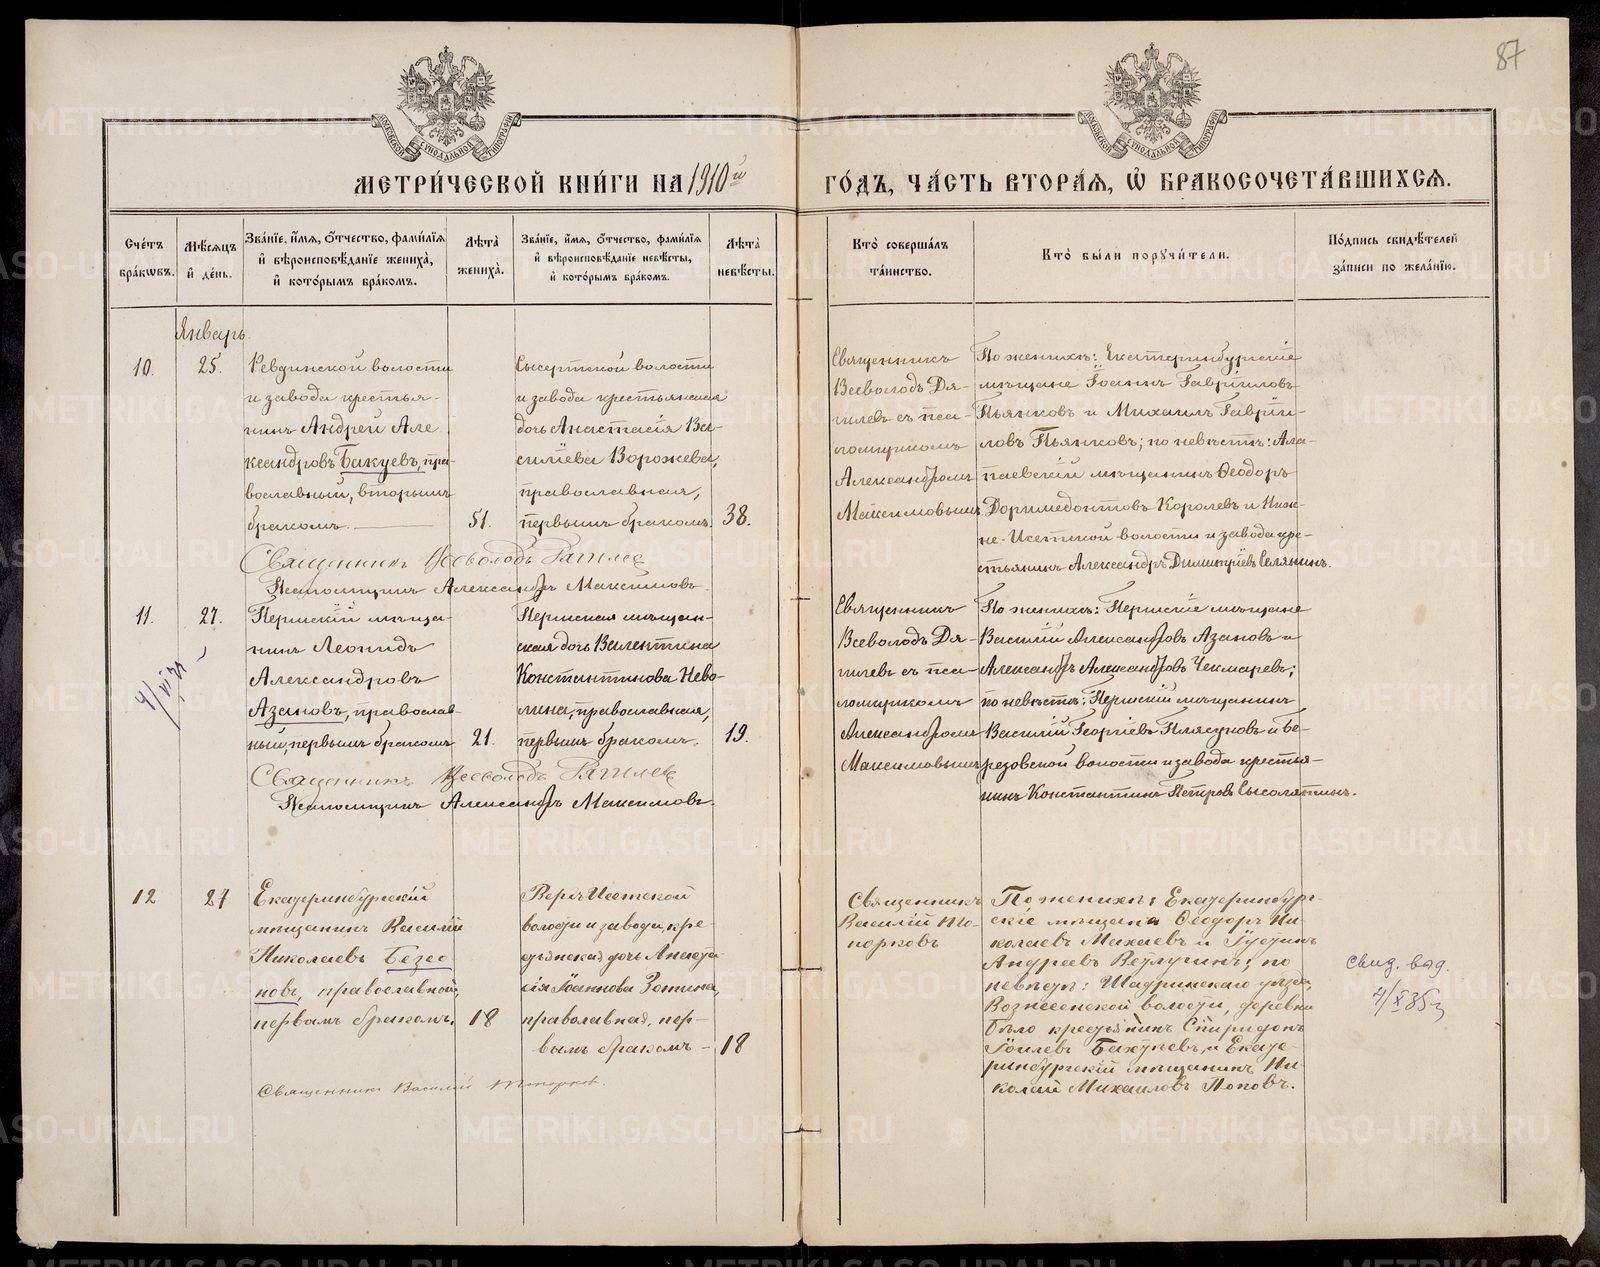 87
МОСКОВСКОЙ СУНОДАЛЬНОЙ ТИПОГРАФІИ
МОСКОВСКОЙ СУНОДАЛЬНОЙ ТИПОГРАФІИ
МЕТРИ́ЧЕСКОЙ КНИ́ГИ НА 1910й
ГО́ДЪ, ЧА́СТЬ ВТОРА́Я, Ѡ БРАКОСОЧЕТА́ВШИХСЯ.
Сче́тъ бра́кѡвъ.
Мѣ́сяцъ и де́нь.
Зва́нїе, и́мя, о́тчество, фами́лїя и вѣроисповѣ́данїе жениха̀, и кото́рымъ бра́комъ.
Лѣта̀ жениха̀.
Зва́нїе, и́мя, о́тчество, фами́лїя и вѣроисповѣ́данїе невѣ́сты, и кото́рымъ бра́комъ.
Лѣта̀ невѣ́сты.
Кто̀ соверша́лъ та́инство.
Кто̀ бы́ли поручи́тели.
По́дпись свидѣ́телей за́писи по жела́нїю.
Январь.
10.
25.
Ревдинской волости
и завода крестья-
нинъ Андрей Але
ксандровъ Бакуевъ, пра-
вославный, вторымъ
бракомъ.
51.
Сысертской волости
и завода крестьянская
дочь Анастасія Ва-
силіева Ворожева,
православная,
первымъ бракомъ.
38.
Священникъ
Всеволодъ Дя-
гилевъ съ пса-
ломщикомъ
Александромъ
Максимовымъ
По женихѣ: Екатеринбургскіе
мѣщане Іоаннъ Гавріиловъ
Пьянковъ и Михаилъ Гаврі-
ловъ Пьянковъ; по невѣстѣ: Ала-
паевскій мѣщанинъ Ѳеодоръ
Доримедонтовъ Королевъ и Ниж-
не-Исетской волости и завода кре-
стьянинъ Александръ Димитріевъ Селянинъ.
Священникъ Всеволодъ Дягилев
Псаломщикъ Александръ Максимовъ
11.
27.
Пермскій мѣща-
нинъ Леонидъ
Александровъ
Азановъ, православ-
ный, первымъ бракомъ
21.
Пермская мѣщан-
ская дочь Валентина
Константинова Нево-
лина, православная,
первымъ бракомъ.
19.
Священникъ
Всеволодъ Дя-
гилевъ съ пса-
ломщикомъ
Александромъ
Максимовымъ
По женихѣ: Пермскіе мѣщане
Василій Александровъ Азановъ и
Александръ Александровъ Чекмаревъ;
по невѣстѣ: Пермскій мѣщанинъ
Василій Георгіевъ Плясуновъ и Бе-
резовской волости и завода крестья-
нинъ Константинъ Петровъ Сысолятинъ.
Священникъ Всеволодъ Дягилев
Псаломщикъ Александръ Максимовъ.
12
27
Екатеринбургскій
мѣщанинъ Василій
Николаевъ Безсо
новъ, православной,
первымъ бракомъ.
18
Верхъ Исетской
волости и завода, кре-
стьянская дочь Анаста-
сія Іоаннова Зотина,
праволавная, пер-
вымъ бракомъ –
18
Священникъ
Василій То-
порковъ
По женихѣ: Екатеринбург-
скіе мѣщане Ѳеодоръ Ни-
колаевъ Михаевъ и Іустинъ
Андреевъ Ветлугинъ; по
невѣстѣ: Шадринскаго уѣзда,
Вознесенской волости, деревни
Было крестьянинъ Спиридонъ
Іоилевъ Бахтѣевъ, и Екате-
ринбургскій мѣщанинъ Ни-
колай Михаиловъ Поповъ.
свид. выд.
4/X 35 г
Священникъ Василій Топорковъ.